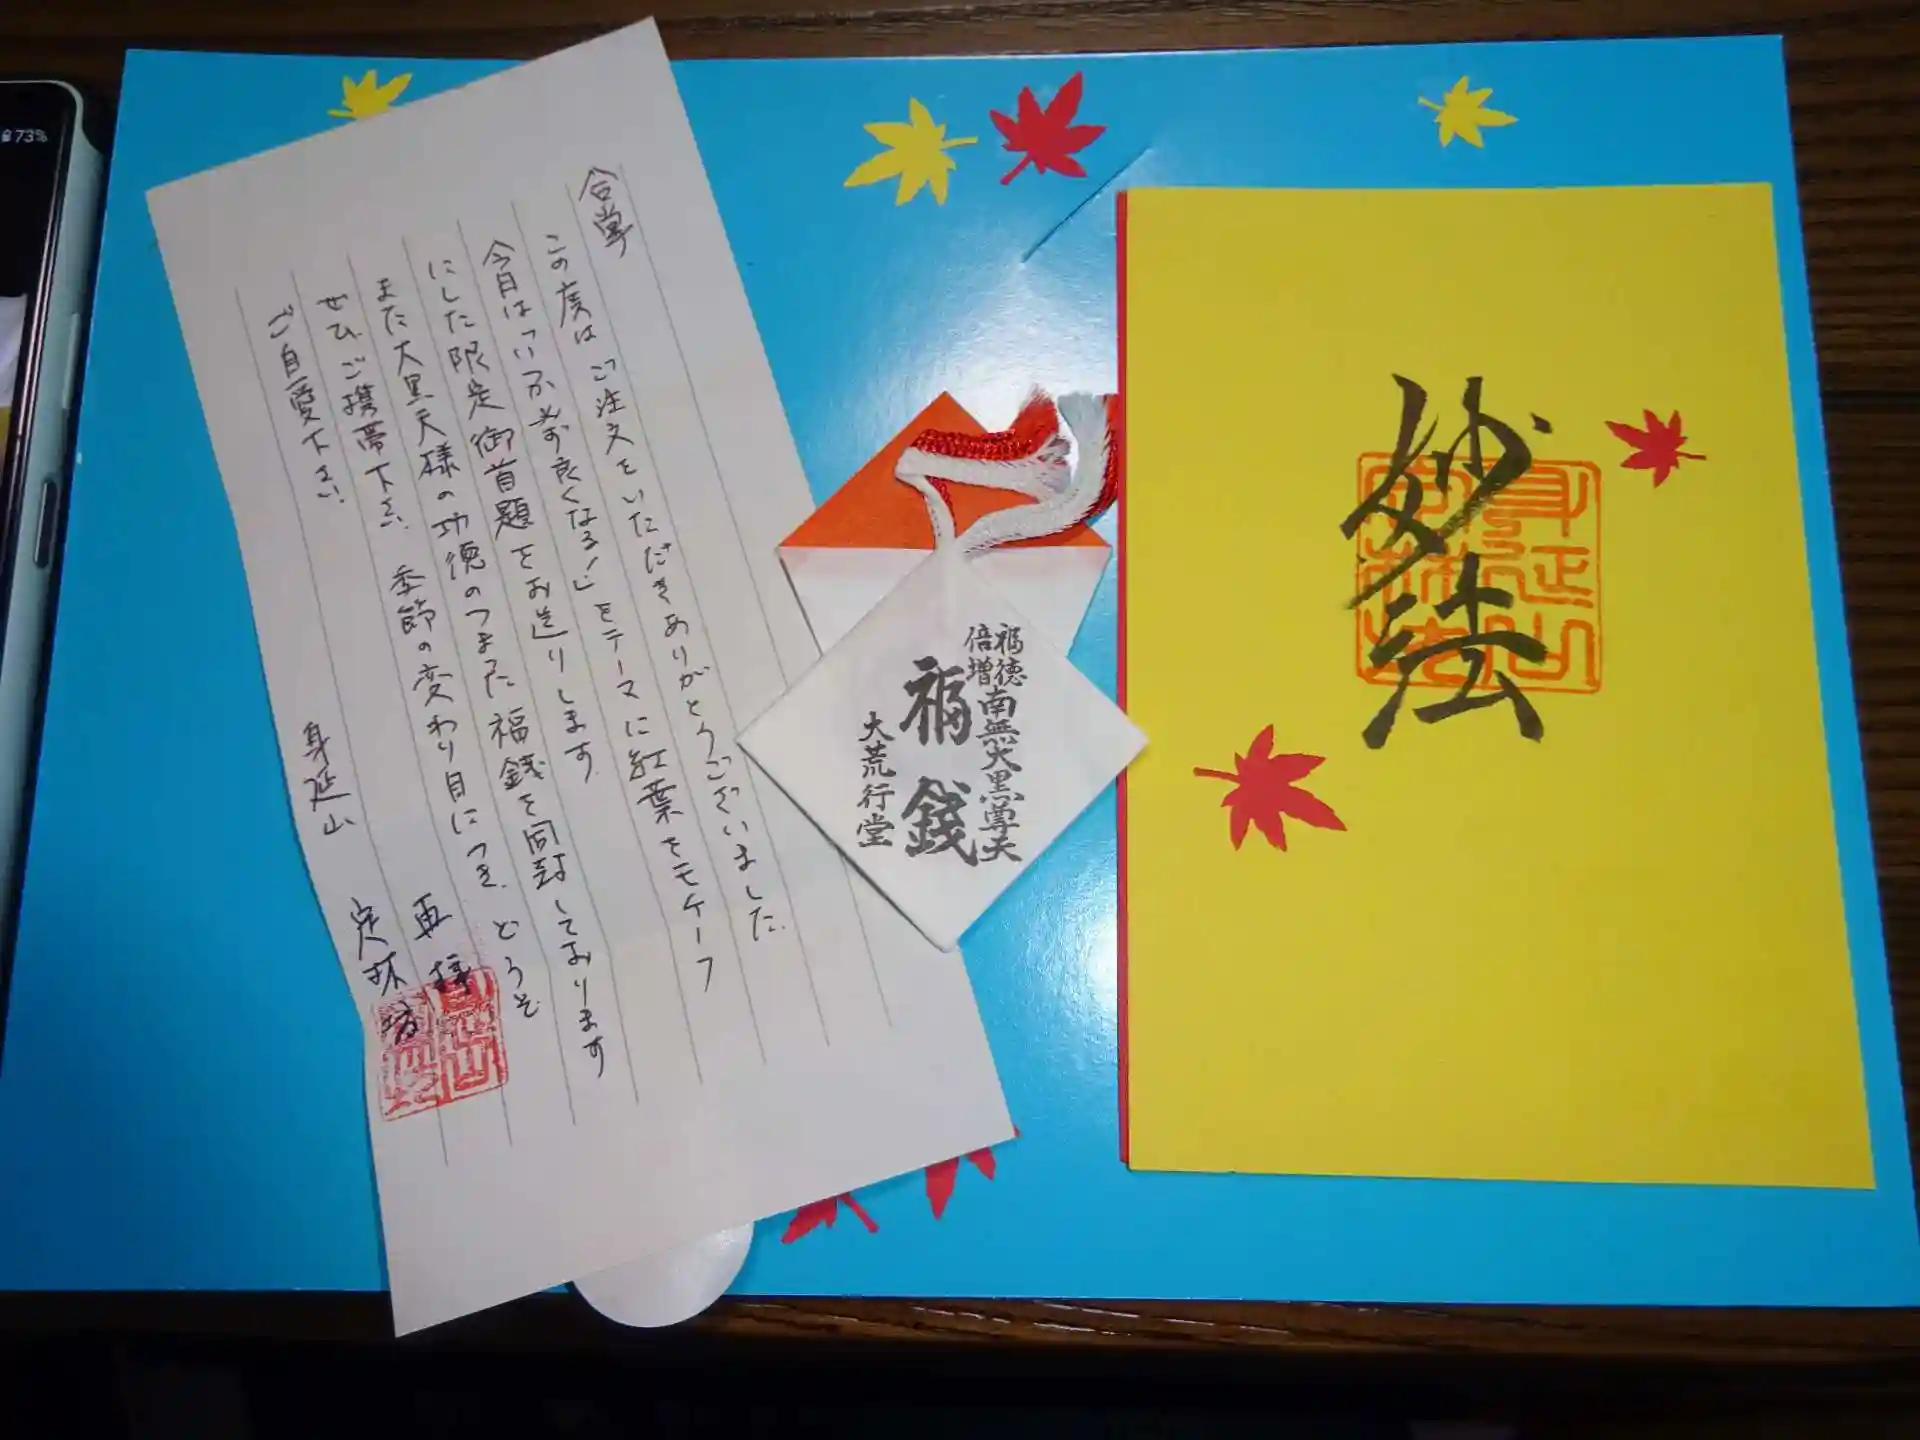 73%
合掌
この度はご注文をいただきありがとうございました。
今月は「いか必ず良くなる!」をテーマに紅葉をモチーフ
にした限定御首題をお送りします。
また大黒天様の功徳のつまった福銭を同封しております
ぜひご携帯下さい。季節の変わり目につき、どうぞ
ご自愛下さい。
再拝
身延山 定林坊
福徳
倍増
南無大黒尊天
福銭
大荒行堂
妙法
身延山